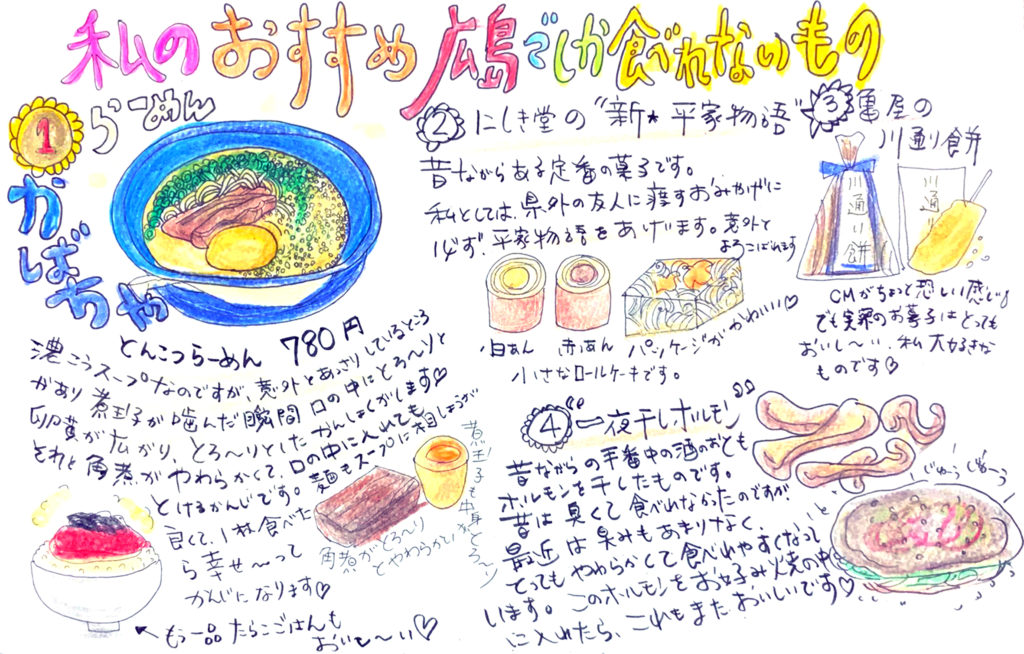 私のおすすめ広島でしか食べれないもの
1
らーめん
かばちゃ
とんこつらーめん 780円
濃こうスープなのですが、意外とあっさりしているところ
があり煮玉子が噛んだ瞬間口の中にとろ〜りと
卵黄が広がり、とろ〜りとしたかんしょくがします♡
それと角煮がやわらかくて、口の中に入れても
とけるかんじです。麺もスープに相性が
良くて、1杯食べた
ら幸せ〜って
かんじになります♡
角煮がとろ〜り
とやわらかい
煮玉子も中身とろ〜り
もう一品たらこごはんも
おいし〜い♡
② にしき堂の“新★平家物語”
昔ながらある定番の菓子です。
私としては、県外の友人に渡すおみやげに
必ず平家物語をあげます。意外と
よろこばれます
白あん
赤あん
パッケージがかわいい♡
小さなロールケーキです。
3 亀屋の
川通り餅
川通り餅
川通り
CMがちょっと恐しい感じ
でも実際のお菓子はとっても
おいし〜い。私大好きな
ものです♡
④ 一夜干しホルモン
昔ながらの手番中の酒のおとも
ホルモンを干したものです。
昔は臭くて食べれなかったのですが
最近は臭みもあまりなく、
とってもやわらかくて食べれやすくなって
います。このホルモンをお好み焼の中
に入れたら、これもまたおいしいです♡
じゅ〜う じゅ〜う